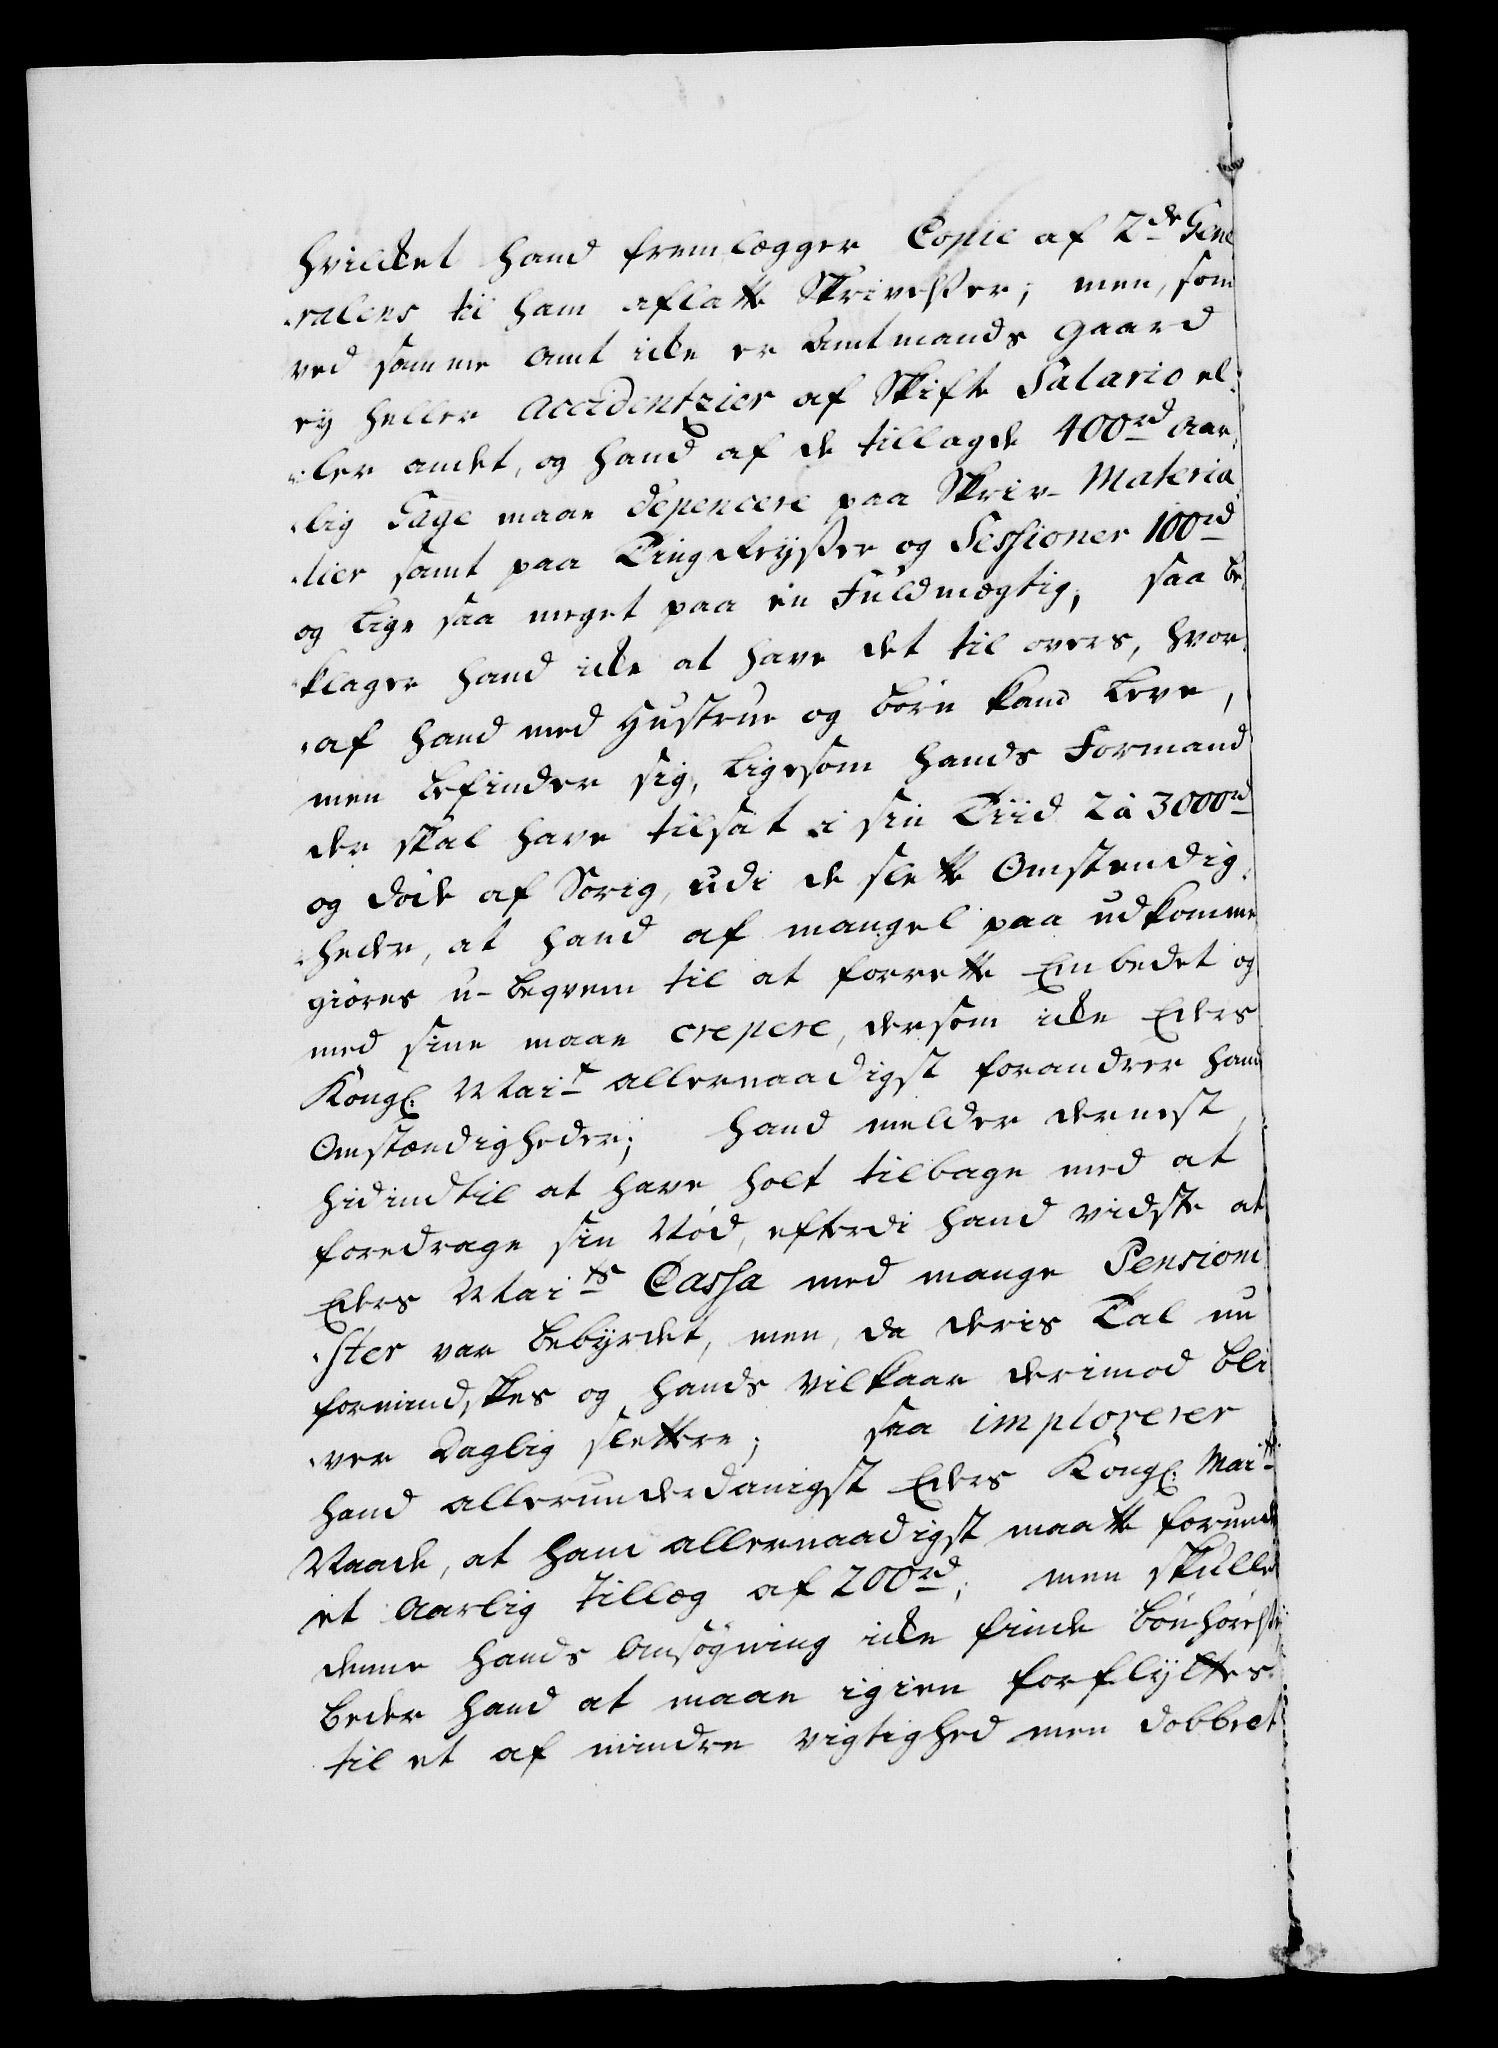 hvilket hand fremlægger Copie af 2de Gene
ralens til ham aflatte Skrivelser; men, som
ved samme Amt icke er Amtmands Gaard
ey heller Accidentzier af Skifte Salario el-
ler andet, og hand af de tillagde 400rd Aar-
lig Gage maae depencere paa Skriv-Materia
lier samt paa Ting Reyser og Sessioner 100rd
og lige saa meget paa en Fuldmægtig, saa be-
klager hand icke at have det til overs, hvor-
af hand med Hustrue og Børn kand leve,
men befinder sig, ligesom hands Formand
der skal have tilsat i sin Tiid 2 à 3000rd
og døde af Sorig, udi de slette Omstendig-
heder, at hand af mangel paa udkomme
giøres u-beqvem til at forrette Embedet og
med sine maae crepere, dersom icke Eders
Kongl: Mait allernaadigst forandrer hans
Omstændigheder; hand melder dernest,
hidindtil at have holt tilbage med at
foredrage sin Nød, efterdi hand vidste at
Eders Maits Cassa med mange Pensioni
ster var bebyrdet, men, da deris Tal nu
formindskes og hands vilkaar derimod bli
ver daglig slettere; saa imploreter
hand allerunderdanigst Eders Kongl: Maits
Naade, at ham allernaadigst maatte forunde
et Aarlig Tillæg af 200rd; men skulle
denne hands Ansøgning icke finde bønhørelse,
beder hand at maae igien forflyttes
til et af mindre vigtighed men dobbelt